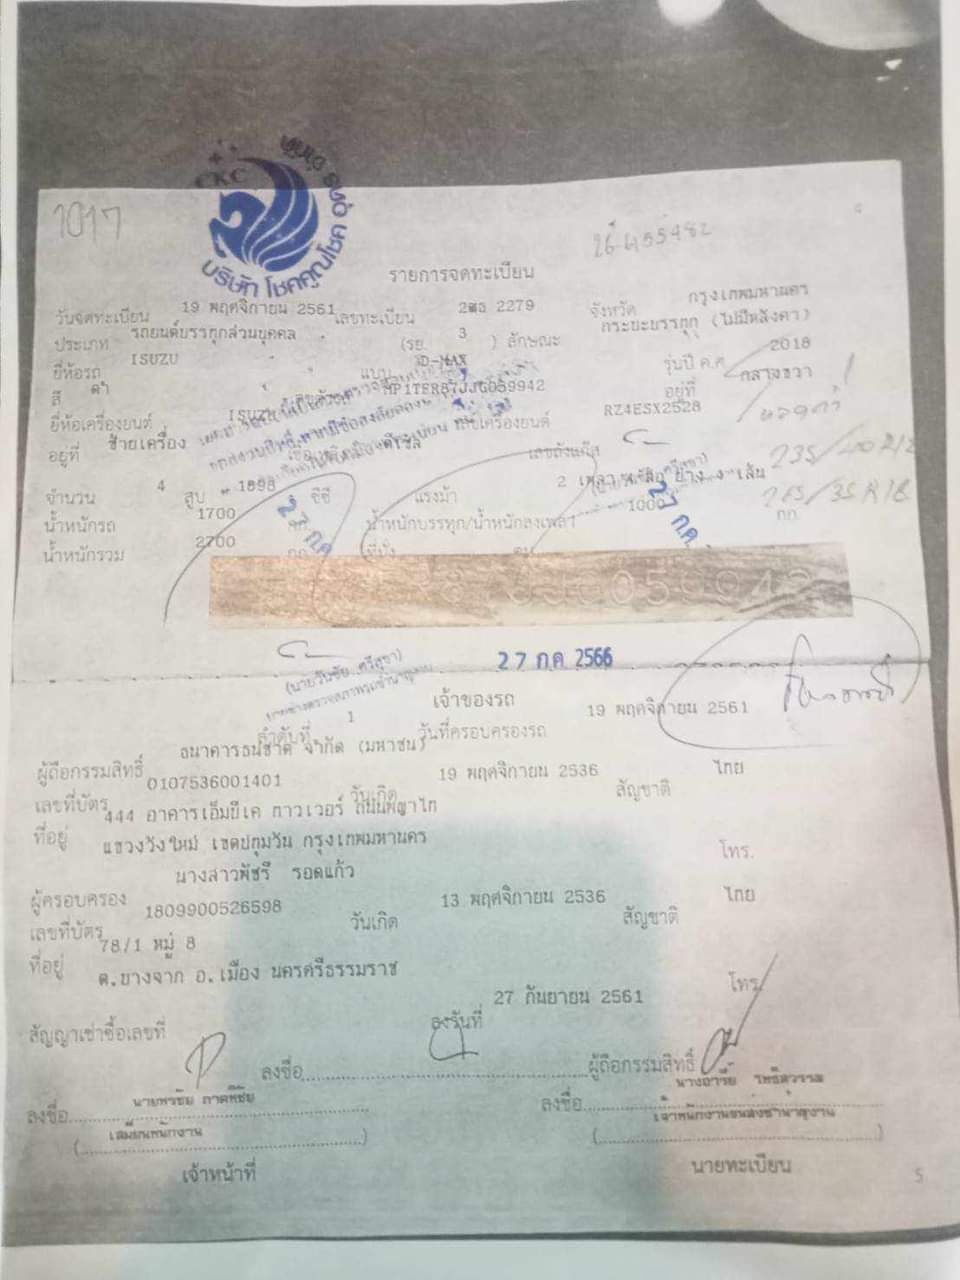 CKC
บริษัท โชคคูณโชค
1017
26-455482
รายการจดทะเบียน
วันจดทะเบียน 19 พฤศจิกายน 2561 เลขทะเบียน 2ฒธ 2279 จังหวัด กรุงเทพมหานคร
ประเภท รถยนต์บรรทุกส่วนบุคคล (รย. 3 ) ลักษณะ กระบะบรรทุก (ไม่มีหลังคา)
ยี่ห้อรถ ISUZU แบบ D-MAX รุ่นปี ค.ศ. 2018
สี ดำ MP1TFR87JJG059942 อยู่ที่ กลางขวา
ยี่ห้อเครื่องยนต์ ISUZU เลขเครื่องยนต์ RZ4ESX2528
อยู่ที่ ซ้ายเครื่อง ดีเซล เลขถังแก๊ส
จำนวน 4 สูบ 1898 ซีซี แรงม้า 2 เพลา 4 ล้อ ยาง 4 เส้น
235/40 R18
265/35 R18
น้ำหนักรถ 1700 กก. น้ำหนักบรรทุก/น้ำหนักลงเพลา 1000 กก.
น้ำหนักรวม 2700 กก. ที่นั่ง คน
27 ก.ค.
27 ก.ค.
27 ก.ค. 2566
(นายวันชัย ศรีสุชา)
เจ้าของรถ
ลำดับที่ 1 วันที่ครอบครองรถ 19 พฤศจิกายน 2561
ผู้ถือกรรมสิทธิ์ ธนาคารธนชาต จำกัด (มหาชน)
เลขที่บัตร 0107536001401 วันเกิด 19 พฤศจิกายน 2536 สัญชาติ ไทย
ที่อยู่ 444 อาคารเอ็มบีเค ทาวเวอร์ ถนนพญาไท
แขวงวังใหม่ เขตปทุมวัน กรุงเทพมหานคร โทร.
ผู้ครอบครอง นางสาวพัชรี รอดแก้ว
เลขที่บัตร 1809900526598 วันเกิด 13 พฤศจิกายน 2536 สัญชาติ ไทย
ที่อยู่ 78/1 หมู่ 8
ต.บางจาก อ.เมือง นครศรีธรรมราช โทร.
สัญญาเช่าซื้อเลขที่ ลงวันที่ 27 กันยายน 2561
ลงชื่อ ผู้ถือกรรมสิทธิ์
ลงชื่อ นายพรชัย ภาคพิชัย
ลงชื่อ นางอารีย์ โพธิสุวรรณ
เสมียนพนักงาน
เจ้าพนักงานขนส่งชำนาญงาน
เจ้าหน้าที่
นายทะเบียน
5